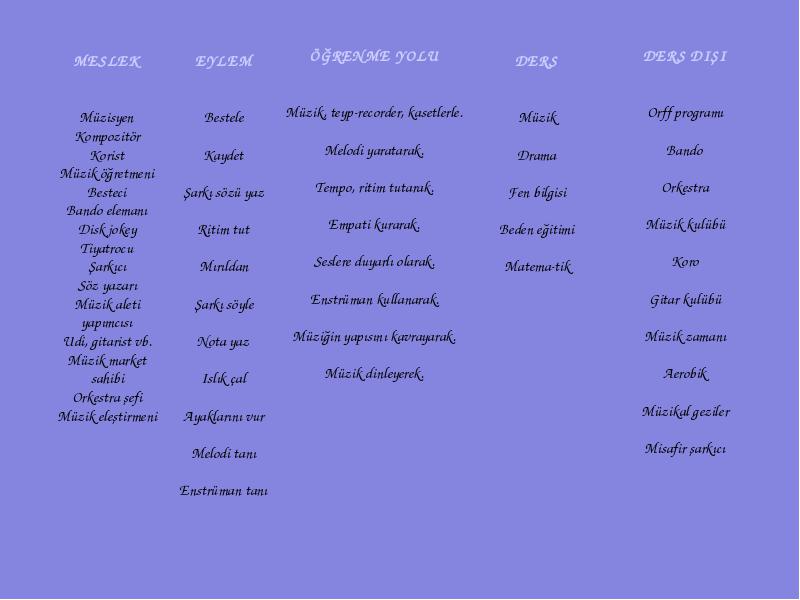 MESLEK
Müzisyen
Kompozitör
Korist
Müzik öğretmeni
Besteci
Bando elemanı
Disk jokey
Tiyatrocu
Şarkıcı
Söz yazarı
Müzik aleti
yapımcısı
Udi, gitarist vb.
Müzik market
sahibi
Orkestra şefi
Müzik eleştirmeni
EYLEM
Bestele
Kaydet
Şarkı sözü yaz
Ritim tut
Mırıldan
Şarkı söyle
Nota yaz
Islık çal
Ayaklarını vur
Melodi tanı
Enstrüman tanı
ÖĞRENME YOLU
Müzik, teyp-recorder, kasetlerle.
Melodi yaratarak.
Tempo, ritim tutarak.
Empati kurarak.
Seslere duyarlı olarak.
Enstrüman kullanarak.
Müziğin yapısını kavrayarak.
Müzik dinleyerek.
DERS
Müzik
Drama
Fen bilgisi
Beden eğitimi
Matema-tik
DERS DIŞI
Orff programı
Bando
Orkestra
Müzik kulübü
Koro
Gitar kulübü
Müzik zamanı
Aerobik
Müzikal geziler
Misafir şarkıcı